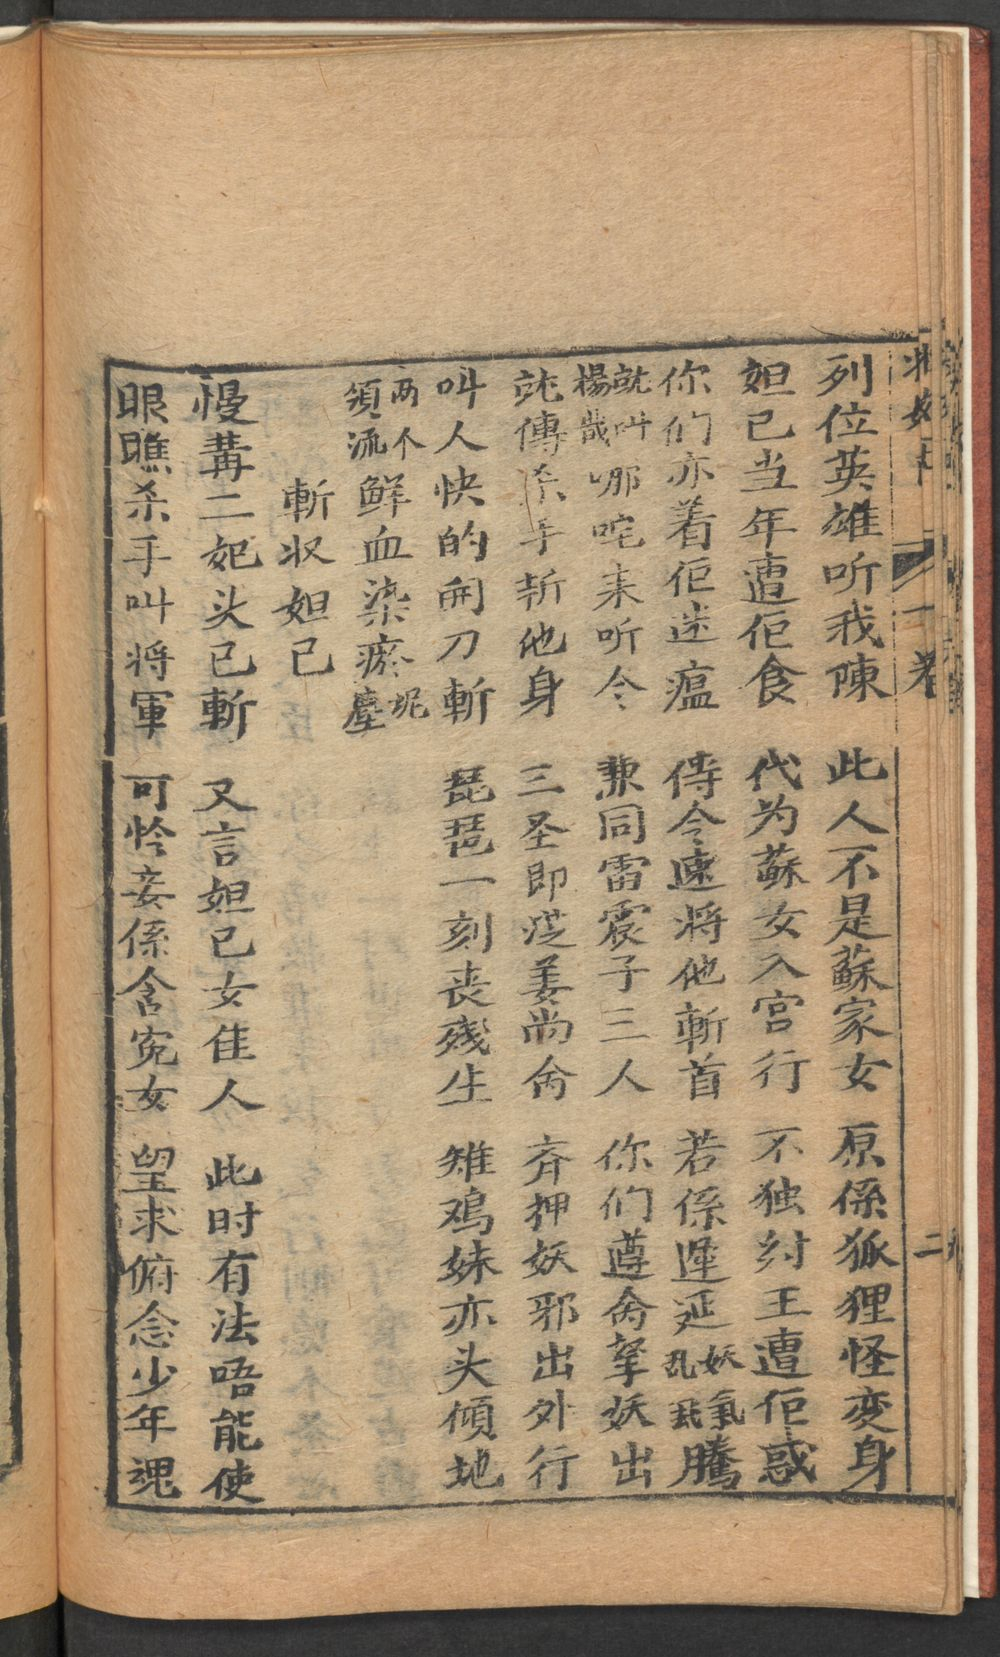 列位英雄听我陳　此人不是蘇家女　原係狐狸怪变身
妲己当年遭佢食　代为蘇女入宫行　不独纣王遭佢惑
你们亦着佢迷瘟　传令速将他斬首　若係遅延妖氣乱我騰
就叫楊戬哪咤来听令　兼同雷震子三人　你们遵命拏妖出
就傳杀手斩他身　三圣即従姜尚命　齐押妖邪出外行
叫人快的開刀斬　琵琶一刻丧残生　雉鸡妹亦头傾地
两个須流鲜血染瘀坭塵
斬収妲己
慢講二妃头已斬　又言妲己女佳人　此时有法唔能使
眼瞧杀手叫将軍　可怜妾係含冤女　望求俯念少年魂